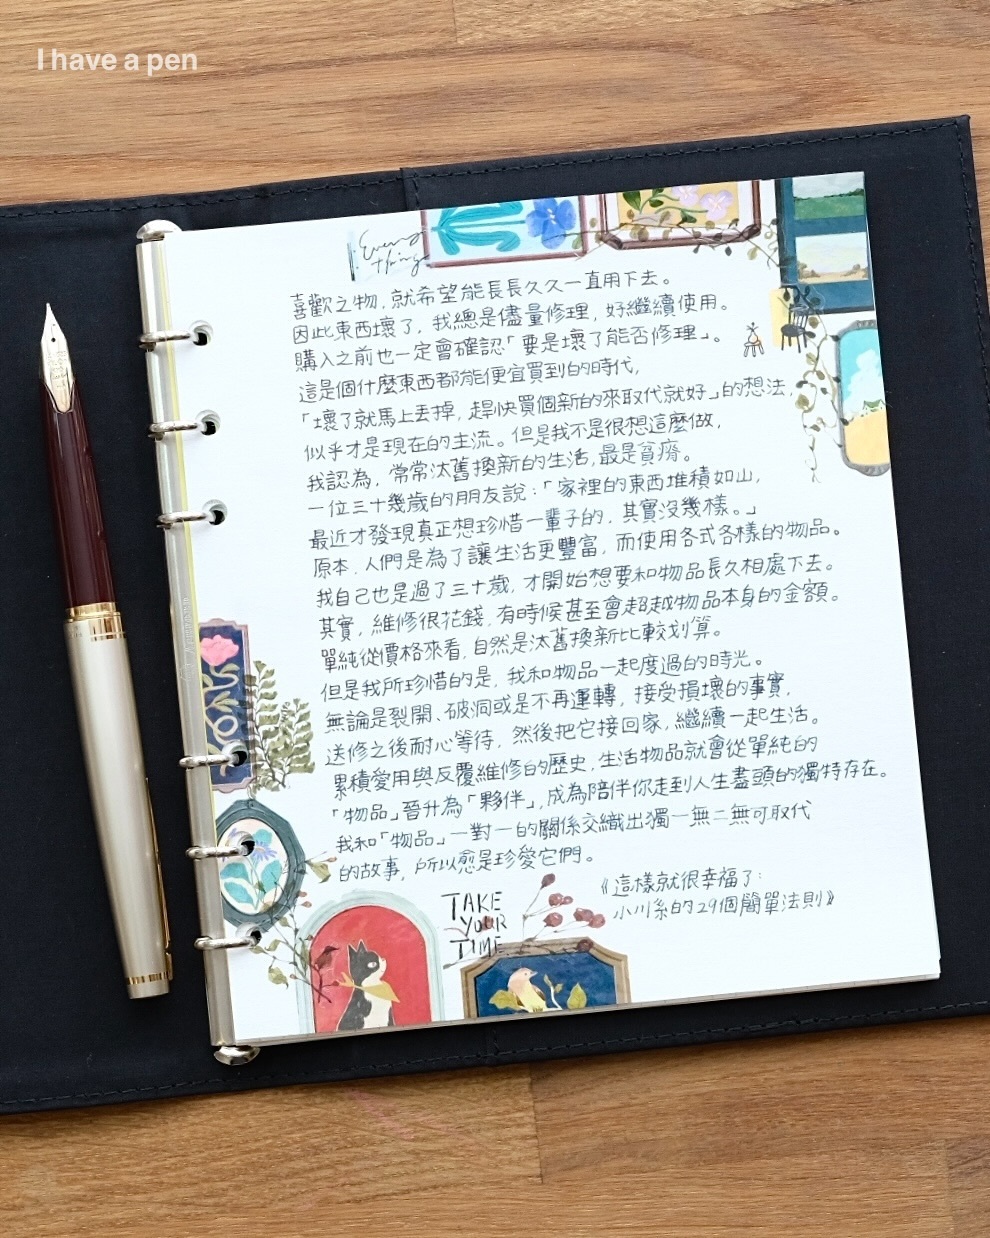 I have a pen
Every
thing
喜歡之物，就希望能長長久久一直用下去。
因此東西壞了，我總是儘量修理，好繼續使用。
購入之前也一定會確認「要是壞了能否修理」。
這是個什麼東西都能便宜買到的時代，
「壞了就馬上丟掉，趕快買個新的來取代就好」的想法，
似乎才是現在的主流。但是我不是很想這麼做，
我認為，常常汰舊換新的生活，最是貧瘠。
一位三十幾歲的朋友說：「家裡的東西堆積如山，
最近才發現真正想珍惜一輩子的，其實沒幾樣。」
原本，人們是為了讓生活更豐富，而使用各式各樣的物品。
我自己也是過了三十歲，才開始想要和物品長久相處下去。
其實，維修很花錢，有時候甚至會超越物品本身的金額。
單純從價格來看，自然是汰舊換新比較划算。
但是我所珍惜的是，我和物品一起度過的時光。
無論是裂開、破洞或是不再運轉，接受損壞的事實，
送修之後耐心等待，然後把它接回家，繼續一起生活。
累積愛用與反覆維修的歷史，生活物品就會從單純的
「物品」晉升為「夥伴」，成為陪伴你走到人生盡頭的獨特存在。
我和「物品」一對一的關係交織出獨一無二無可取代
的故事，所以愈是珍愛它們。
《這樣就很幸福了：
小川糸的29個簡單法則》
TAKE
YOUR
TIME